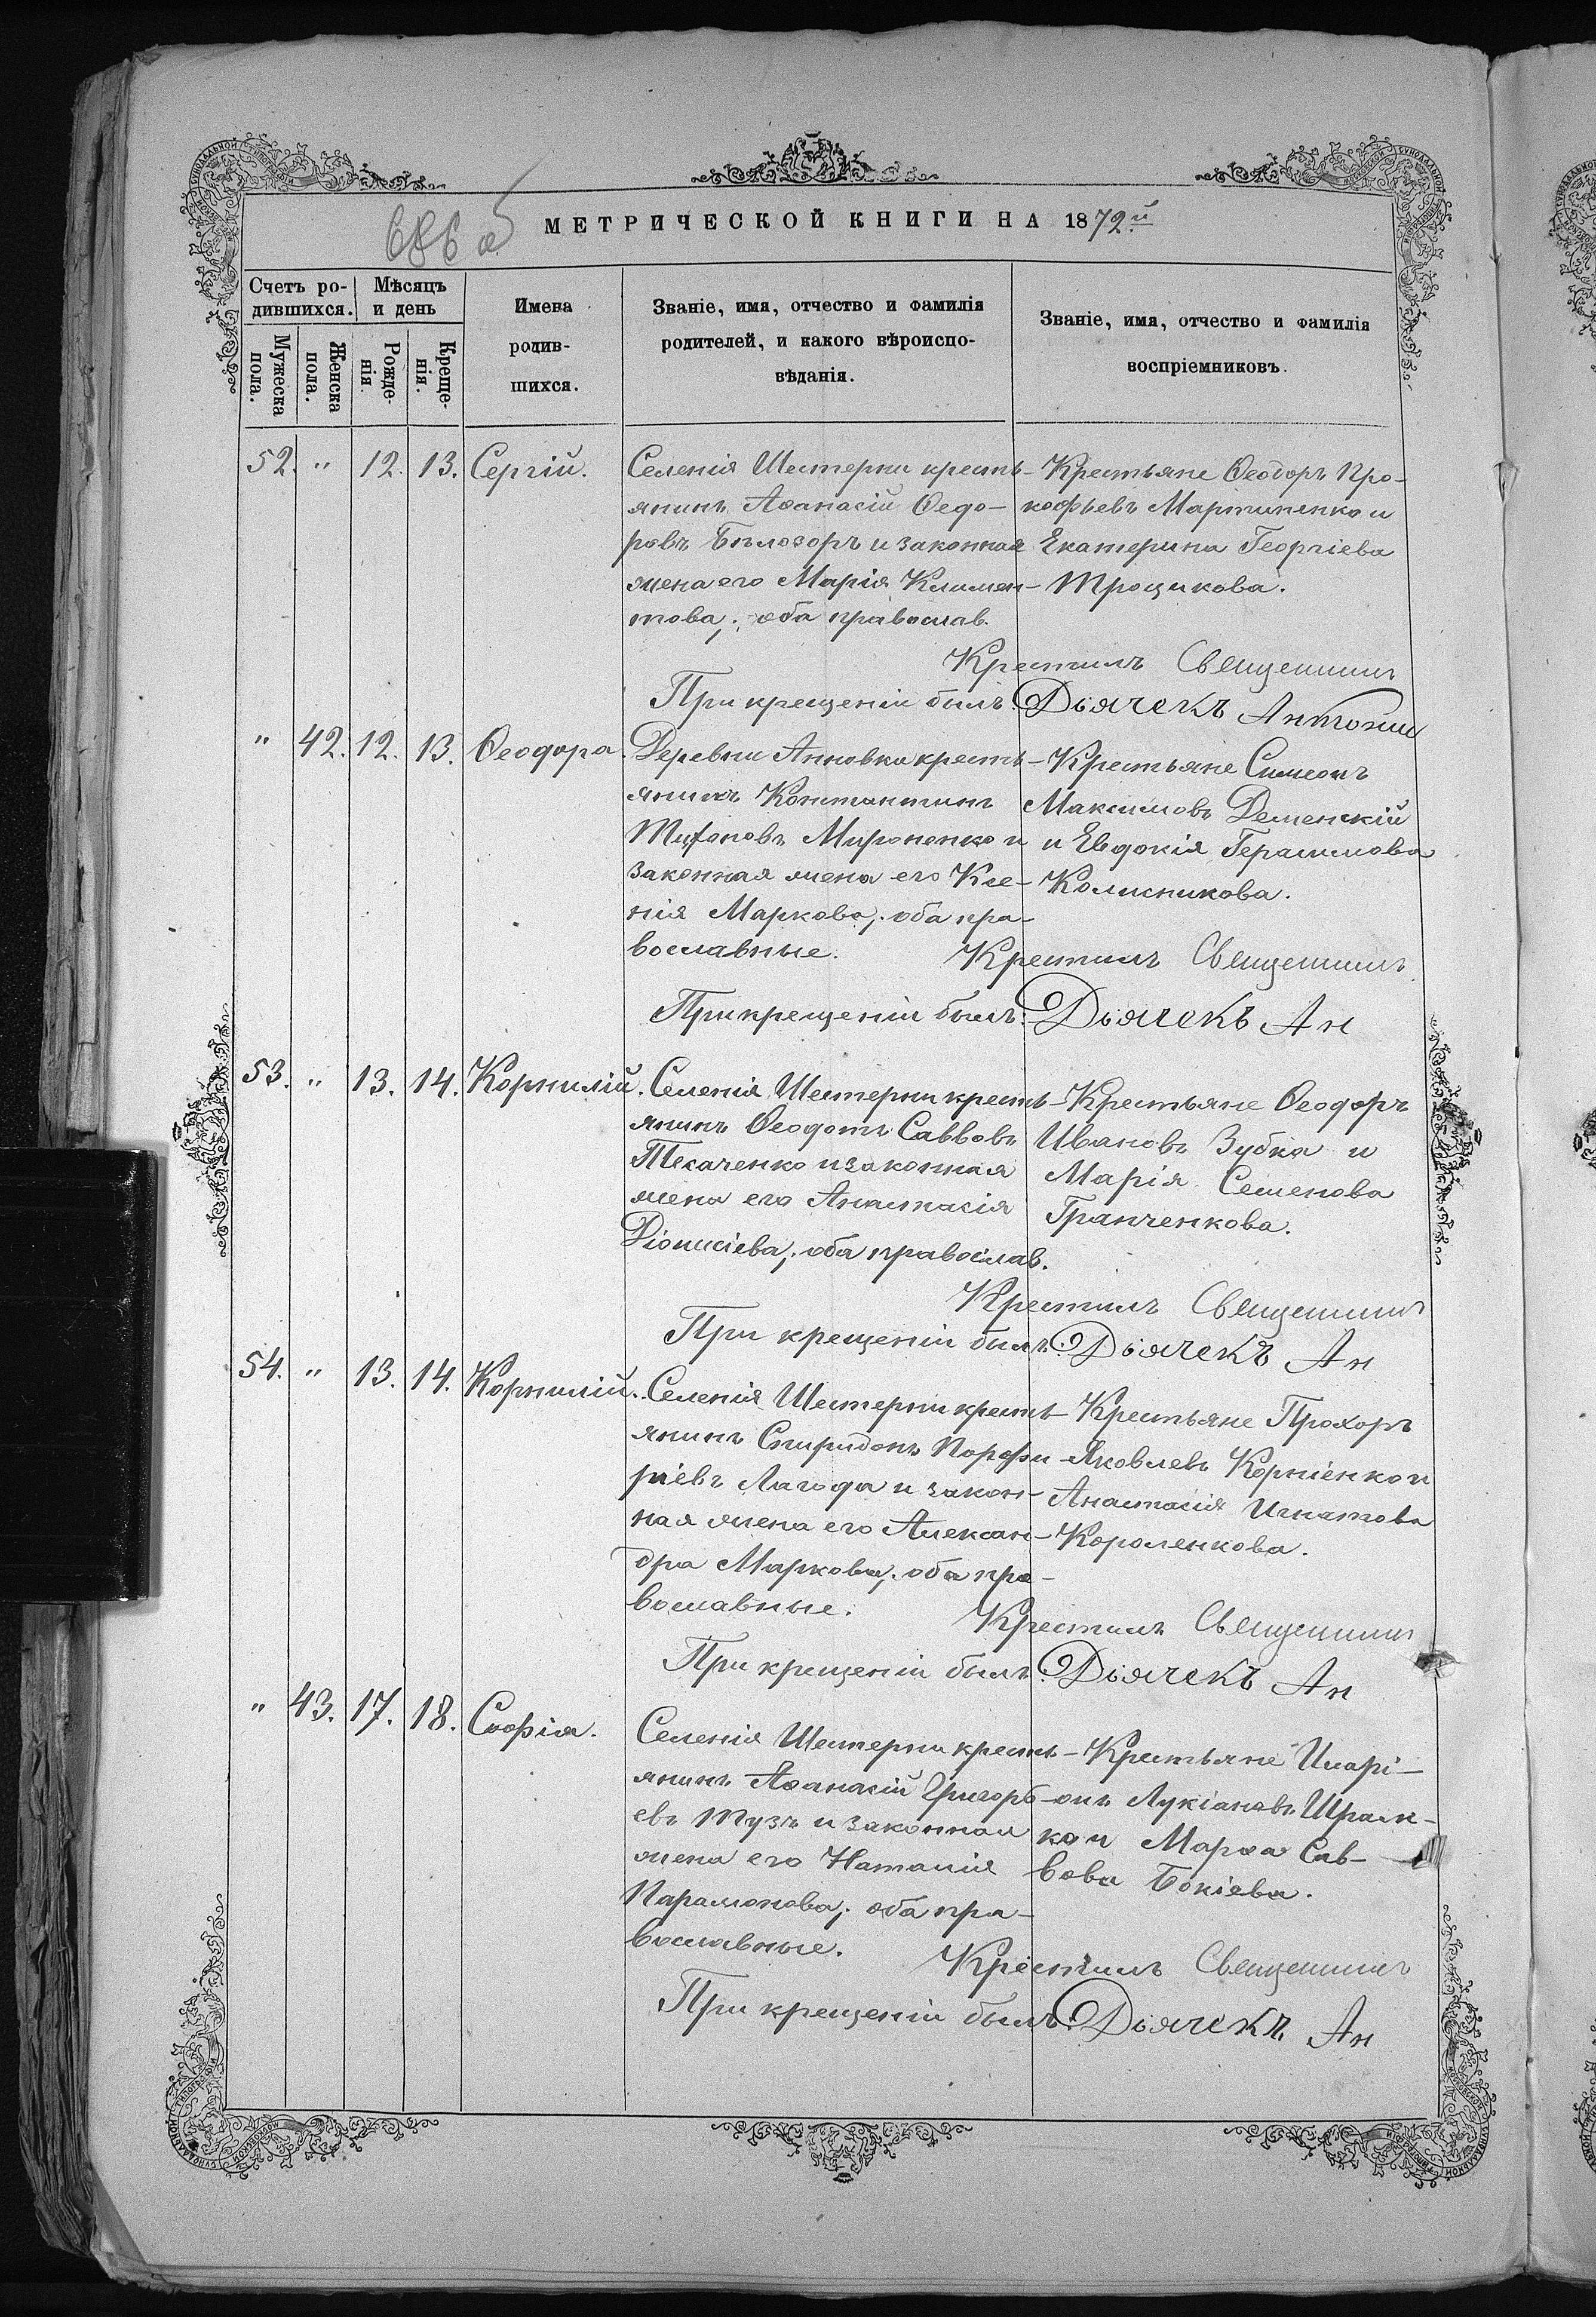 686 об
МЕТРИЧЕСКОЙ КНИГИ НА 1872й
Счетъ ро-
дившихся.
Мужеска
пола.
Женска
пола.
Мѣсяцъ
и день
Рожде-
нія.
Креще-
нія.
Имена
родив-
шихся.
Званіе, имя, отчество и фамилія
родителей, и какого вѣроиспо-
вѣданія.
Званіе, имя, отчество и фамилія
воспріемниковъ.
52. " 12. 13. Сергій.
Селенія Шестерни кресть-
янинъ Аѳанасій Ѳедо-
ровъ Бѣлозоръ и законная
жена его Марія Климен-
това; оба православ.
Крестьяне Ѳеодоръ Про-
кофьевъ Мартиненко и
Екатерина Георгіева
Троцикова.
Крестилъ Священникъ
При крещеніи былъ: Дьячекъ Антоній
" 42. 12. 13. Ѳеодора.
Деревни Анновки кресть-
янинъ Константинъ
Тихоновъ Мироненко и
законная жена его Ксе-
нія Маркова; оба пра-
вославные.
Крестьяне Симеонъ
Максимовъ Деменскій
и Евдокія Герасимова
Колисникова.
Крестилъ Священникъ
При крещеніи былъ: Дьячекъ Ан
53. " 13. 14. Корнилій.
Селенія Шестерни кресть-
янинъ Ѳеодотъ Саввовъ
Ткаченко и законная
жена его Анастасія
Діонисіева; оба православ.
Крестьяне Ѳеодоръ
Ивановъ Зубка и
Марія Семенова
Гранченкова.
Крестилъ Священникъ
При крещеніи былъ: Дьячекъ Ан
54. " 13. 14. Корнилій.
Селенія Шестерни кресть-
янинъ Спиридонъ Порфи-
ріевъ Лагода и закон-
ная жена его Алексан-
дра Маркова; оба пра-
вославные.
Крестьяне Прохоръ
Яковлевъ Корніенко и
Анастасія Игнатова
Короленкова.
Крестилъ Священникъ
При крещеніи былъ: Дьячекъ Ан
" 43. 17. 18. Софія.
Селенія Шестерни кресть-
янинъ Аѳанасій Григорь-
евъ Тузъ и законная
жена его Наталія
Парамонова; оба пра-
вославные.
Крестьяне Иларі-
онъ Лукіановъ Шрам-
ко и Марѳа Сав-
вова Бокіева.
Крестилъ Священникъ
При крещеніи былъ: Дьячекъ Ан